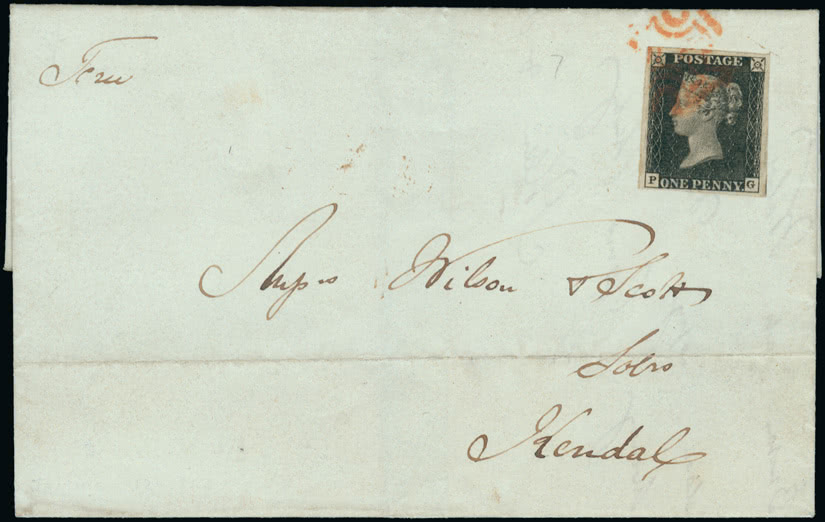 POSTAGE
P ONE PENNY. G
7
Messrs Wilson & Scott
Solrs
Kendal